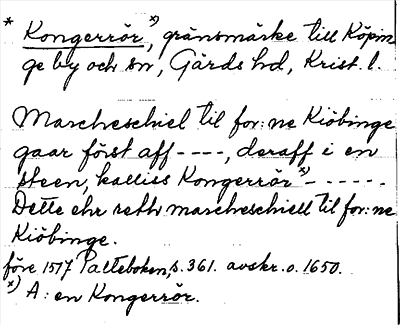 * Kongerrör*), gränsmärke till Köpin
ge by och sn, Gärds hd, Krist. l.
Marcheschiel til for:ne Kiöbinge
gaar först aff ----, deraff i en
steen, kalliss Kongerrör*) - - - - - -
Dette ehr reth marcheschiell til for:ne
Kiöbinge.
före 1517 Palteboken, s. 361. avskr. o. 1650.
*) A: en Kongerrör.